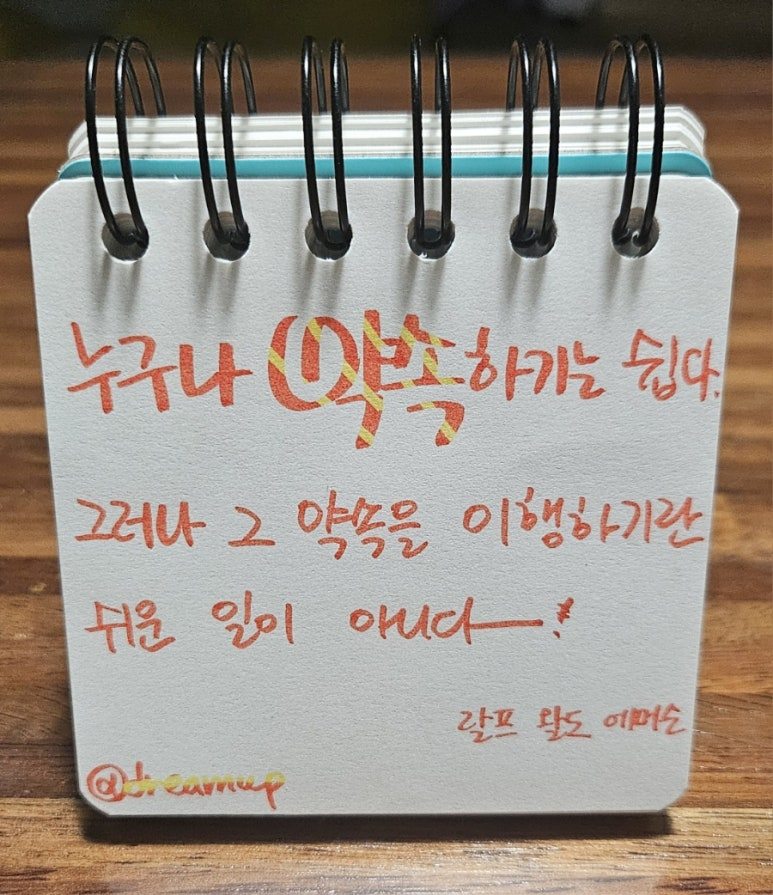 누구나 약속하기는 쉽다.
그러나 그 약속을 이행하기란
쉬운 일이 아니다!
랄프 왈도 에머슨
@dreamup